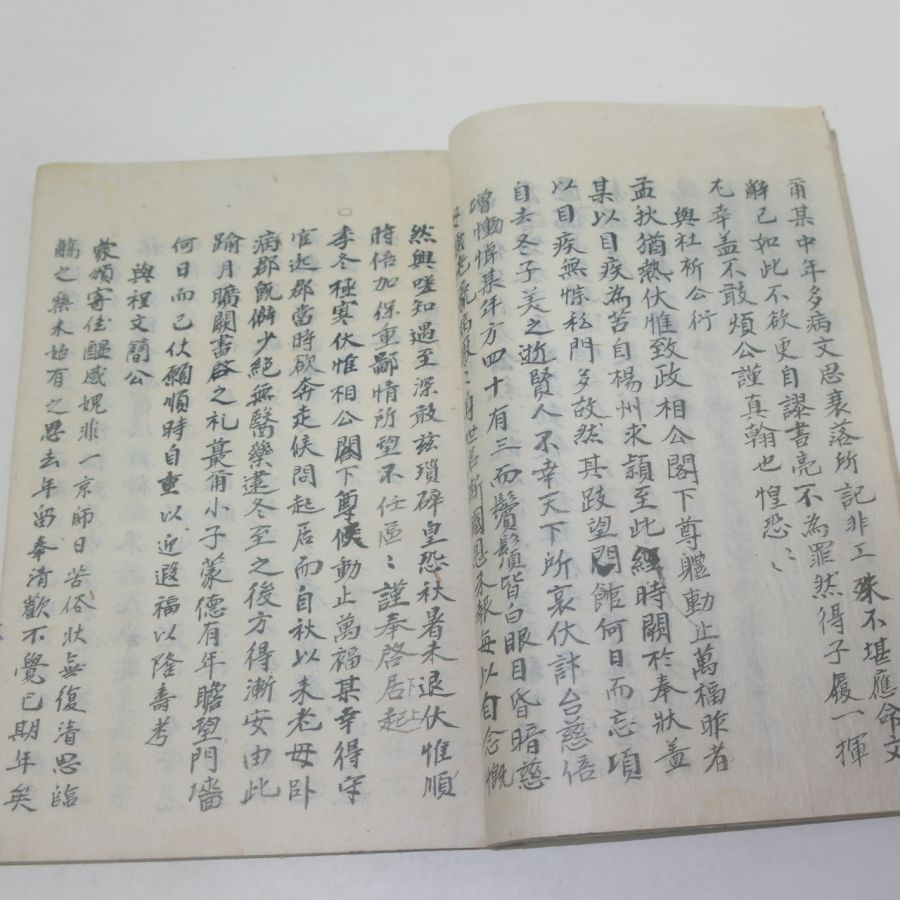 甭某中年多病文思衰落所記非工殊不堪應命文
解已如此不欲更自謬書亮不為罪然得子履一揮
尤幸盖不敢煩公謹真翰也惶恐〻〻
與社祈公衍
孟秋猶熱伏惟致政相公閤下尊體動止萬福昨者
某以目疾為苦自楊州求頴至此時闕於奉狀盖
以目疾無悰私門多故然其跂望門館何日而忘項
自去冬子美之逝賢人不幸天下所哀伏計台慈倍
增慟悼某年方四十有三而鬢鬚皆白眼目昏暗慈
母老病世國恩未報每以自念慨
然興嗟知遇至深敢玆瑣碎皇恐秋暑未退伏惟順
時倍加保重鄙情所望不任區〻謹奉啓居起
季冬極寒伏惟相公閤下尊候動止萬福某幸得守
官迯郡當時欲奔走候問起居而自秋以来老母卧
病郡既僻少絕無醫藥逮冬至之後方得漸安由此
踰月曠闕書啓之礼蕞甭小子蒙德有年瞻望門墻
何日而已伏願順時自重以迎遐福以隆壽考
與程文簡公
蒙頒寄佳醖感媿非一京師日苦俗狀無復清思臨
觴之樂未始有之思去年留奉清歡不覺已期年矣